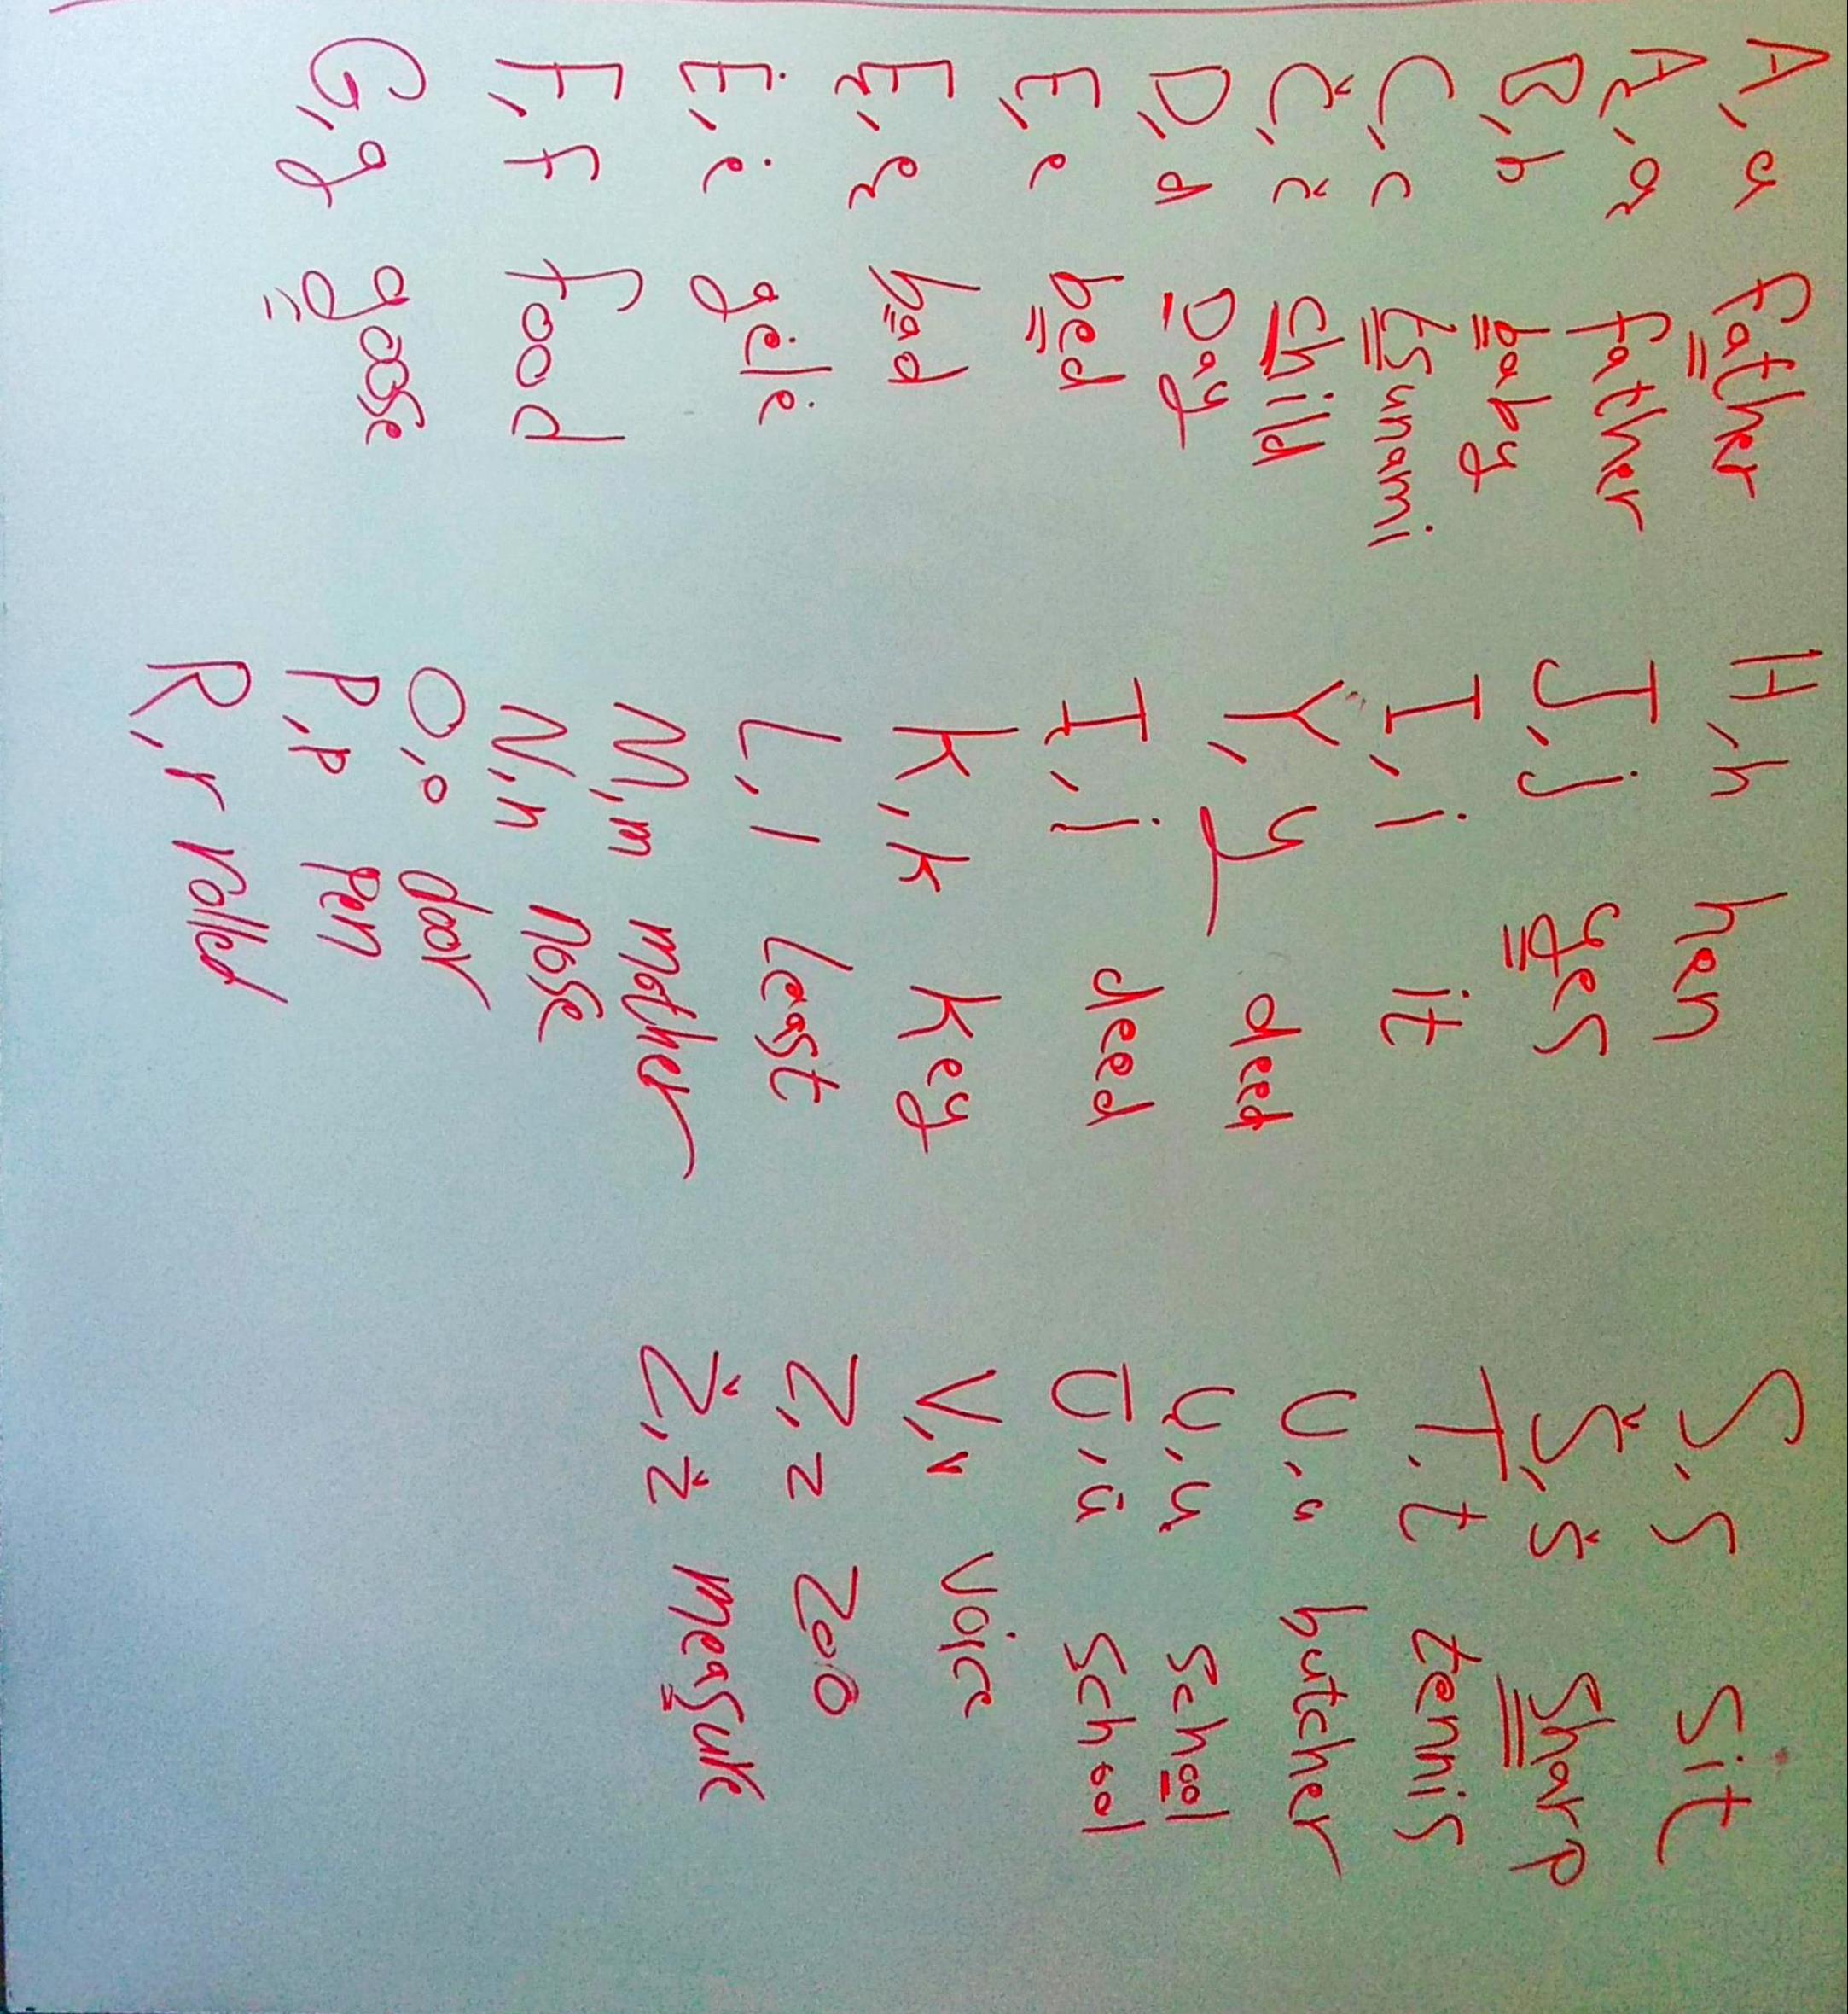 A, a father
Ą, ą father
B, b baby
C, c tsunami
Č, č child
D, d Day
E, e bed
Ę, ę bad
Ė, ė gėlė
F, f food
G, g goose
H, h hen
J, j yes
I, i it
Y, y deed
Į, į deed
K, k key
L, l Least
M, m mother
N, n nose
O, o door
P, p pen
R, r rolled
S, s sit
Š, š sharp
T, t tennis
U, u butcher
Ų, ų school
Ū, ū school
V, v voice
Z, z zoo
Ž, ž measure